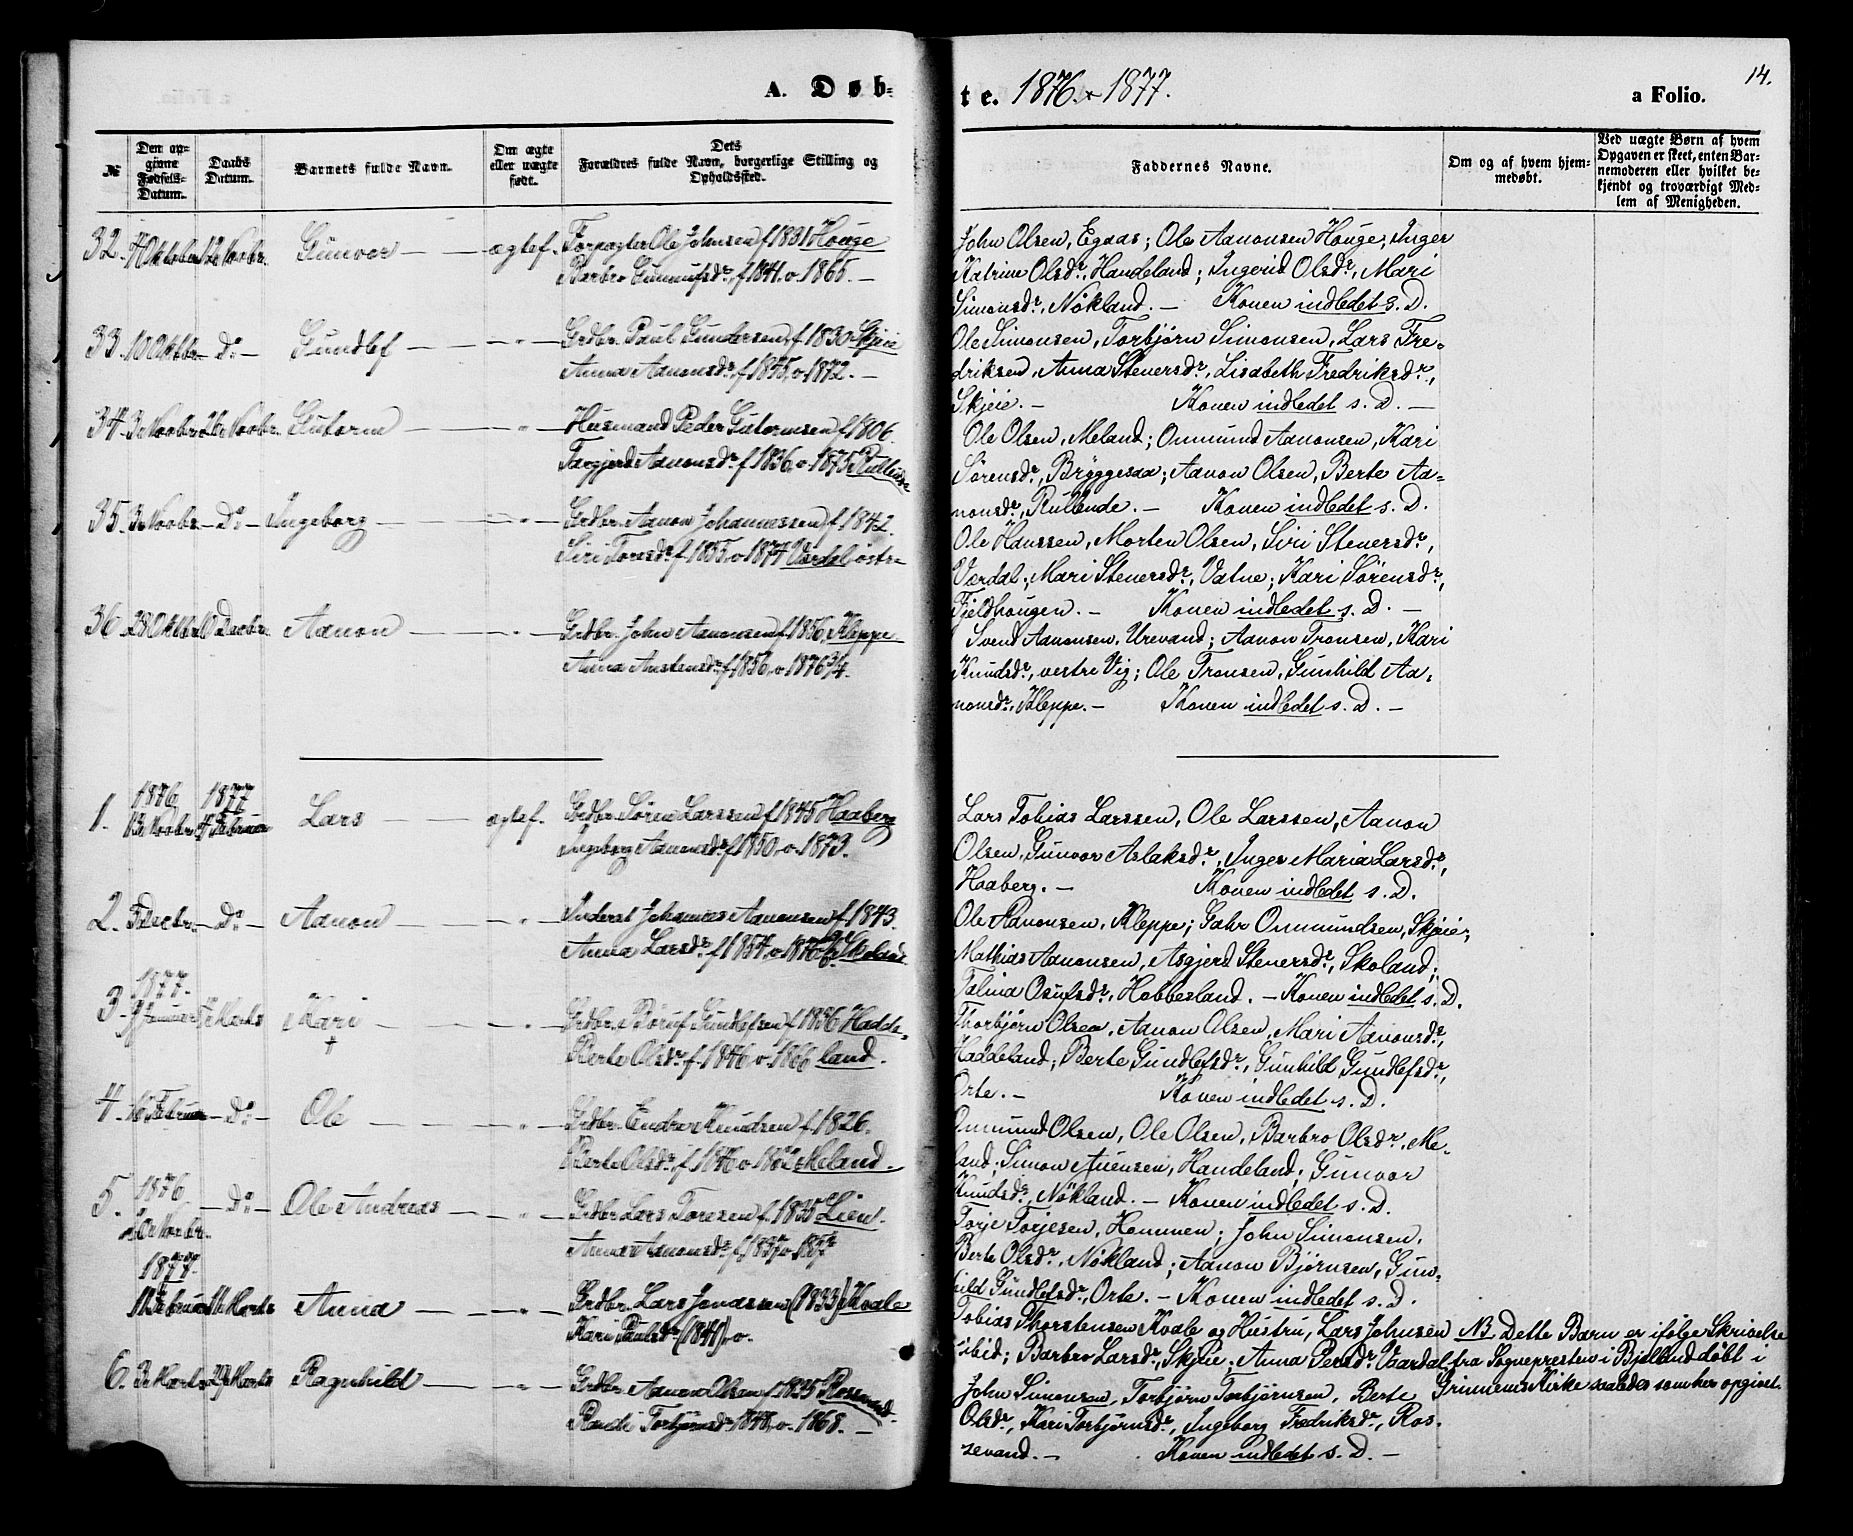 A. Døb-
te. 1876 & 1877.
a Folio.
14.
№
Den opgivne Fødsels-Datum.
Daabs Datum.
Barnets fulde Navn.
Om ægte eller uægte født.
Dets Forældres fulde Navn, borgerlige Stilling og Opholdssted.
Faddernes Navne.
Om og af hvem hjemmedøbt.
Ved uægte Børn af hvem Opgaven er skeet, enten Barnemoderen eller hvilket bekjendt og troværdigt Medlem af Menigheden.
32. 4 Oktober 12 Novbr. Gunvor — ægtef. Forpagter Ole Johnsen f 1831 Houge
Barbro Gunnufsdr., f 1841. v. 1865. —
John Olsen, Egaas; Ole Aanonsen Houge; Inger
Katrine Olsdr., Handeland; Ingerid Olsdr., Mari
Simonsdr., Nökland. — Konen indledet s. D.
33. 10 Oktbr — Do — Gundlef — — " — Grdbr. Paul Gundersen, f 1830 Skjeie
Anna Aanonsdr., f 1845, v. 1872. —
Ole Simonsen, Torbjörn Simonsen, Lars Fre-
driksen, Anna Stenersdr., Lisabeth Fredriksdr.,
Skjeie. — Konen indledet s. D. —
34. 3 Novbr 26 Novbr. Gutorm — " — Husmand Peder Gutormsen f 1806.
Targjerd Aanonsdr. f 1836, v. 1875 Rullende
Ole Olsen, Meland; Onmund Aanonsen, Kari
Sörensdr., Bryggesaa; Aanon Olsen, Berte Aa-
nonsdr., Rullende. — Konen indledet s. D.
35. 3 Novbr — Do — Ingeborg — — " — Grdbr. Aanon Johannessen f. 1842.
Siri Torsdr. f 1855, v. 1874 Værdal östre
Ole Hanssen, Morten Olsen, Siri Stenersdr.,
Værdal; Mari Stenersdr., Vatne; Kari Sörensdr.,
Fjeldhougen. — Konen indledet s. D. —
36 28 Oktbr 10 Decbr. Aanon — — " — Grdbr. John Aanonsen f. 1850, Kleppe
Anna Austensdr., f 1850, v. 1876
Svend Aanonsen, Urevand; Aanon Tronsen, Kari
Knudsdr., vestre Vig; Ole Tronsen, Gunhild Aa-
nonsdr., Kleppe. — Konen indledet s. D. —
1876 1877
1. 13 Novbr. 4 Februar Lars — — ægtef. Grdbr. Sören Larssen f 1845 Haaberg
Ingeborg Aanonsdr. f 1850, v. 1873.
Lars Tobias Larssen, Ole Larssen, Aanon
Olsen, Gunvor Aslaksdr., Inger Maria Larsdr.,
Haaberg. — Konen indledet s. D.
2. 5 Decbr. — Do — Aanon — — " — Inderst Johannes Aanonsen f. 1843.
Anna Larsdr. f 1854, v. 1876 Skoland.
Ole Aanonsen, Kleppe; Gahr Onmundsen, Skjeie;
Mathias Aanonsen, Asgjerd Stenersdr., Skoland;
Talina Osufsdr., Hobbesland. — Konen indledet s. D.
1877.
3 Januar Marts Kari — — " — Grdbr. Böruf Gundlefsen f 1836 Hadde-
†
Berte Olsdr. f 1846, v. 1866 land.
Thorbjörn Olsen, Aanon Olsen, Mari Aanonsdr.,
Haddeland; Berte Gundlefsdr., Gunhild Gundlefsdr.,
Orte. — Konen indledet s. D.
4. 16 Februar — Do — Ole — — " — Grdbr. Endre Knudsen f 1826.
Berte Olsdr. f 1840 v. Meland. —
Onmund Olsen, Ole Olsen, Barbro Olsdr., Me-
land; Simon Auensen, Handeland; Gunvor
Knudsdr., Nökland. — Konen indledet s. D.
5. 1876 Novbr. — Do — Ole Andreas — " — Grdbr. Lars Toresen f. 1835 Lien.
Anna Aanonsdr. f 1837 v. 1857
Torje Torjesen, Hommen; John Simonsen,
Berte Olsdr., Nökland; Aanon Björnsen, Gun-
hild Gundlefsdr., Orte. — Konen indledet s. D.
1877.
11 Februar 11 Marts Anna — — " — Grdbr. Lars Jonassen (1833) Kvale
Kari Paulsdr. (1841), v.
Tobias Thorstensen Kvale og Hustru, Lars Johnsen
ibid; Barbro Larsdr., Skjeie; Anna Persdr. Vaardal
NB Dette Barn er ifölge Skrivelse
fra Sognepresten i Bjelland döbt i
Grinnems Kirke saaledes som her opgivet.
6. 3 Marts 29 Marts Ragnhild — — " — Grdbr. Aanon Olsen f. 1835 Rossevand.
Randi Torbjörnsdr. 1848, v. 1868. —
John Simonsen, Torbjörn Torbjörnsen, Berte
Olsdr., Kari Torbjörnsdr., Ingeborg Fredriksdr., Ros-
sevand. — Konen indledet s. D. —